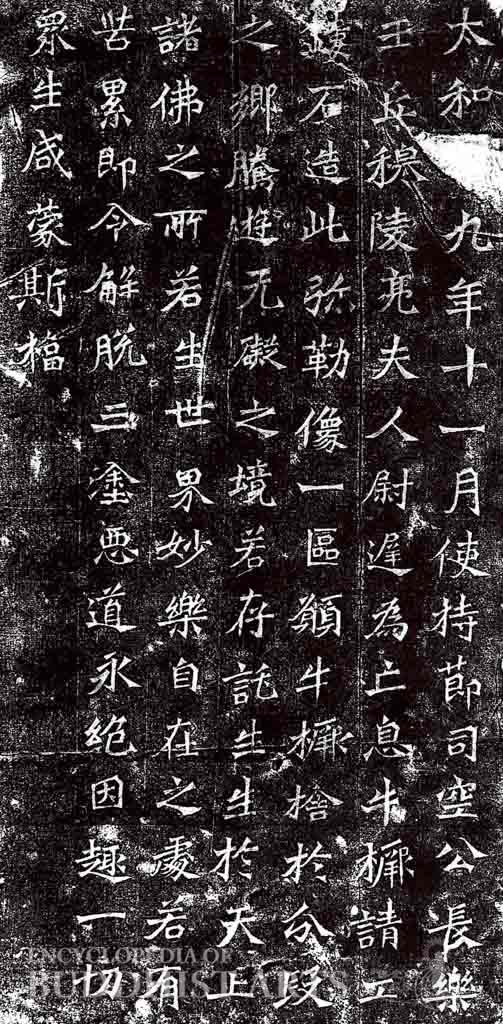 太和九年十一月使持節司空公長樂
王丘穆陵亮夫人尉遲為亡息牛橛請工
鏤石造此弥勒像一區願牛橛捨於分段
之鄉騰遊无礙之境若存託生生於天上
諸佛之所若生世界妙樂自在之處若有
苦累即令解脱三塗惡道永絕因趣一切
眾生咸蒙斯福
ENCYCLOPEDIA OF
BUDDHIST ARTS